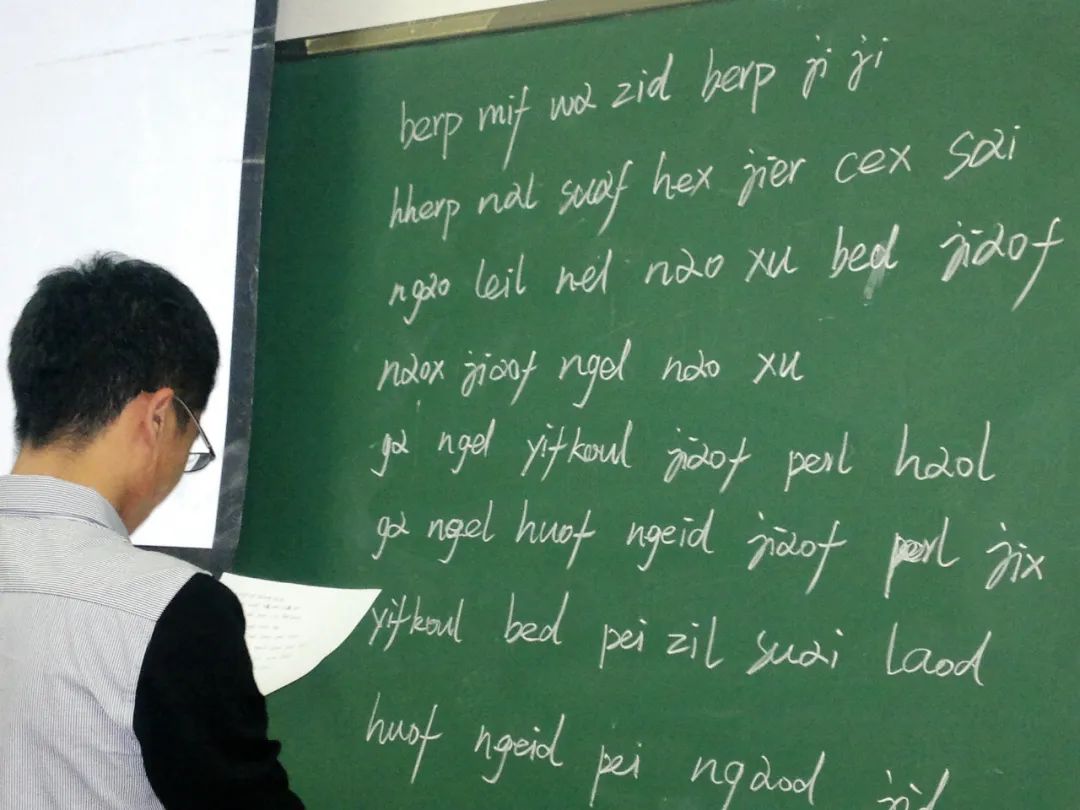 berp mif wa zid berp ji ji
hherp nal suaf hex jier cex sai
ngao leil nel nao xu bed jiaof
naox jiaof ngel nao xu
ga ngel yifkoul jiaof perl haol
ga ngel huof ngeid jiaof perl jix
yifkoul bed pei zil suai laod
huof ngeid pei ngaod jid